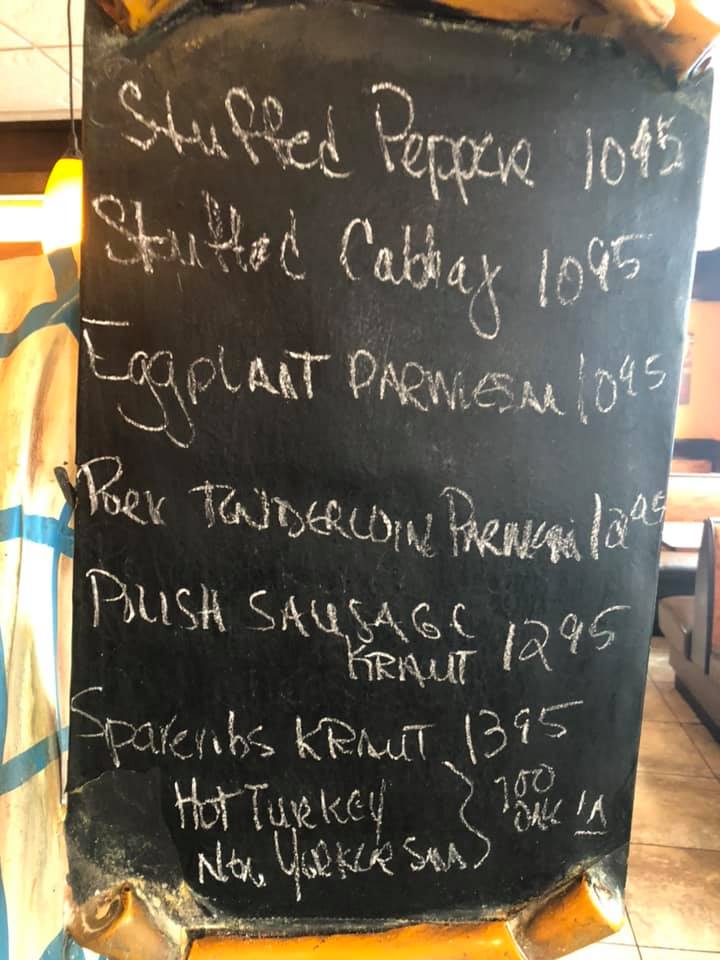 Stuffed Pepper 1095
Stuffed Cabbag 1095
Eggplant Parmesan 1095
Pork Tenderloin Parmesan 1295
Polish Sausage
Kraut 1295
Spareribs Kraut 1395
Hot Turkey
New Yorker